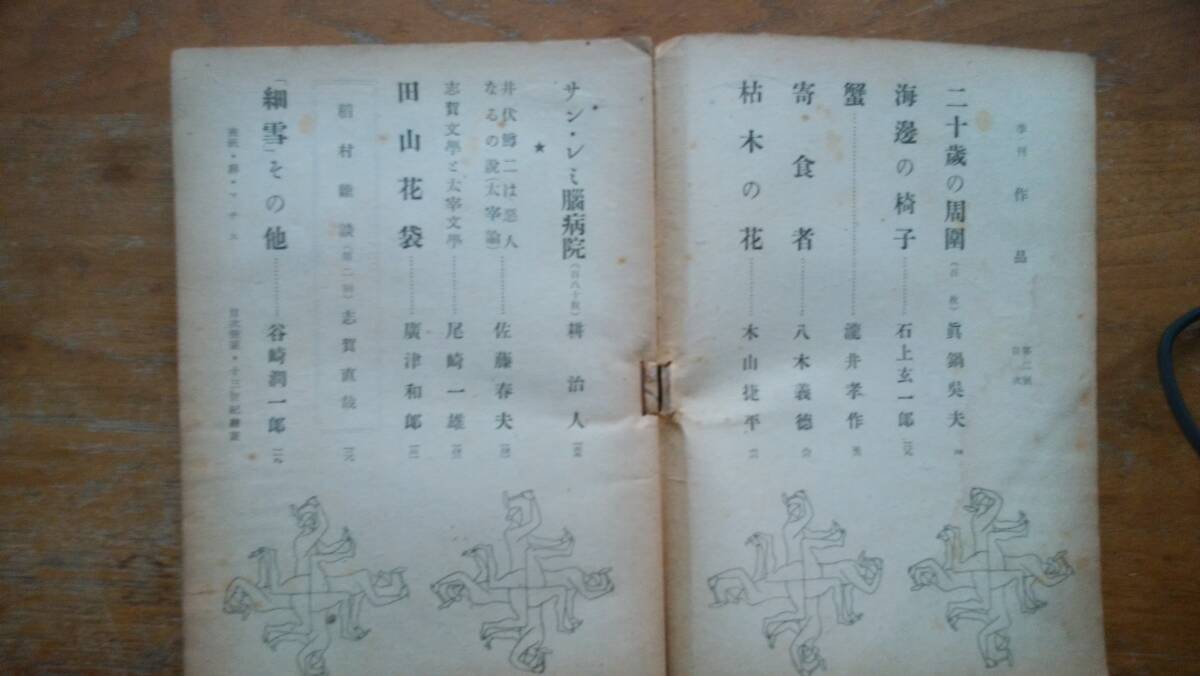 季刊 作品 第二號 目次
二十歳の周圍 (百 枚) 眞鍋吳夫
海邊の椅子 石上玄一郎
蟹 瀧井孝作
寄食者 八木義德
枯木の花 木山捷平
サン・レミ腦病院 (百八十枚) 耕治人
★
井伏鱒二は惡人なるの說(太宰論) 佐藤春夫
志賀文學と太宰文學 尾崎一雄
田山花袋 廣津和郎
稻村雜談(第二囘) 志賀直哉
「細雪」その他 谷崎潤一郎
表紙・鄕・マチス